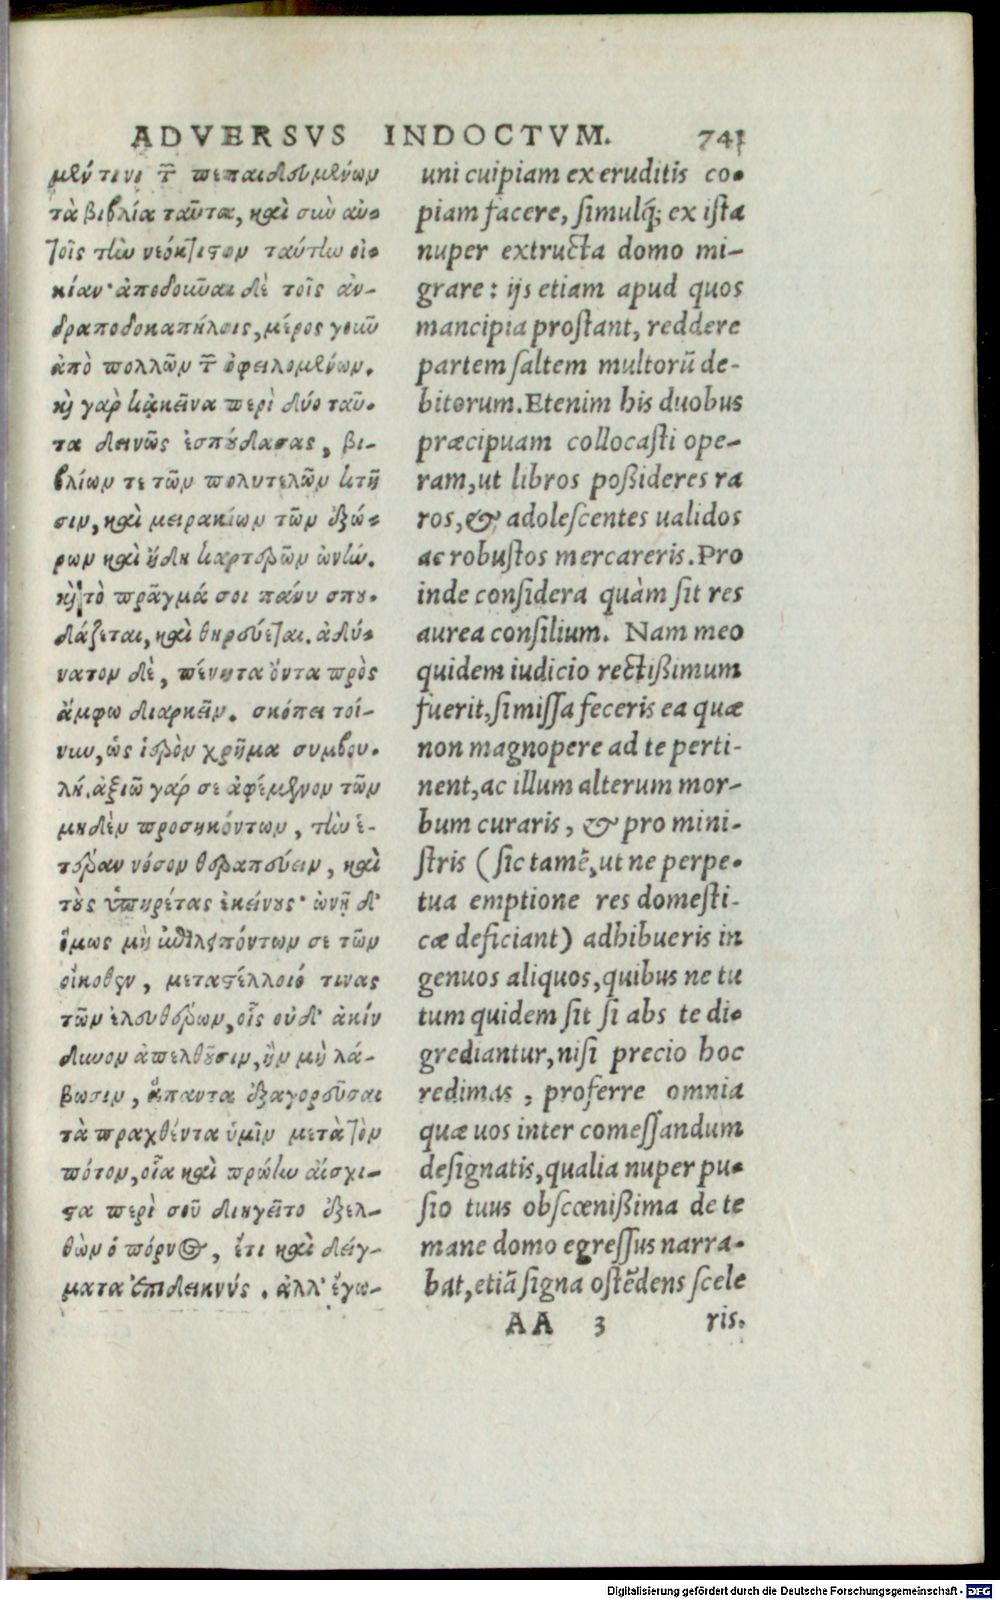 ADVERSVS INDOCTVM. 741
μέν τινι τῶν πεπαιδευμένων
τὰ βιβλία ταῦτα, καὶ σὺν αὐ-
τοῖς τὴν νεόκτιστον ταύτην οἰ-
κίαν· ἀποδοῦναι δὲ τοῖς ἀν-
δραποδοκαπήλοις, μέρος γοῦν
ἀπὸ πολλῶν τῶν ὀφειλομένων.
καὶ γὰρ κἀκεῖνα περὶ δύο ταῦ-
τα δεινῶς ἐσπούδασας, βι-
βλίων τε τῶν πολυτελῶν κτῆ
σιν, καὶ μειρακίων τῶν ἐξώ-
ρων καὶ ἤδη καρτερῶν ὠνήν.
καὶ τὸ πρᾶγμά σοι πάνυ σπου-
δάζεται, καὶ θηρεύεται. ἀδύ-
νατον δὲ, πένητα ὄντα πρὸς
ἄμφω διαρκεῖν. σκόπει τοί-
νυν, ὡς ἱερὸν χρῆμα συμβου-
λή. ἀξιῶ γάρ σε ἀφέμενον τῶν
μηδὲν προσηκόντων, τὴν ἑ-
τέραν νόσον θεραπεύειν, καὶ
τοὺς ὑπηρέτας ἐκείνους· ὠνῇ δ'
ὅμως μὴ ἐπιλειπόντων σε τῶν
οἴκοθεν, μεταστέλλοιό τινας
τῶν ἐλευθέρων, οἷς οὐδ' ἀκίν
δυνον ἀπελθοῦσιν, ἢν μὴ λά-
βωσιν, ἅπαντα ἐξαγορεῦσαι
τὰ πραχθέντα ὑμῖν μετὰ τὸν
πότον, οἷα καὶ πρώην αἴσχι-
στα περὶ σοῦ διηγεῖτο ἐξελ-
θὼν ὁ πόρνος, ἔτι καὶ δείγ-
ματα ἐπιδεικνύς. ἀλλ' ἔγω-
uni cuipiam ex eruditis co-
piam facere, simulq́; ex ista
nuper extructa domo mi-
grare: ijs etiam apud quos
mancipia prostant, reddere
partem saltem multorū de-
bitorum. Etenim his duobus
præcipuam collocasti ope-
ram, ut libros poßideres ra
ros, & adolescentes ualidos
ac robustos mercareris. Pro
inde considera quàm sit res
aurea consilium. Nam meo
quidem iudicio rectißimum
fuerit, si missa feceris ea quæ
non magnopere ad te perti-
nent, ac illum alterum mor-
bum curaris, & pro mini-
stris (sic tamē, ut ne perpe-
tua emptione res domesti-
cæ deficiant) adhibueris in
genuos aliquos, quibus ne tu
tum quidem sit si abs te di-
grediantur, nisi precio hoc
redimas, proferre omnia
quæ uos inter comessandum
designatis, qualia nuper pu-
sio tuus obscœnißima de te
mane domo egressus narra-
bat, etiā signa ostēdens scele
AA 3 ris.
Digitalisierung gefördert durch die Deutsche Forschungsgemeinschaft - DFG